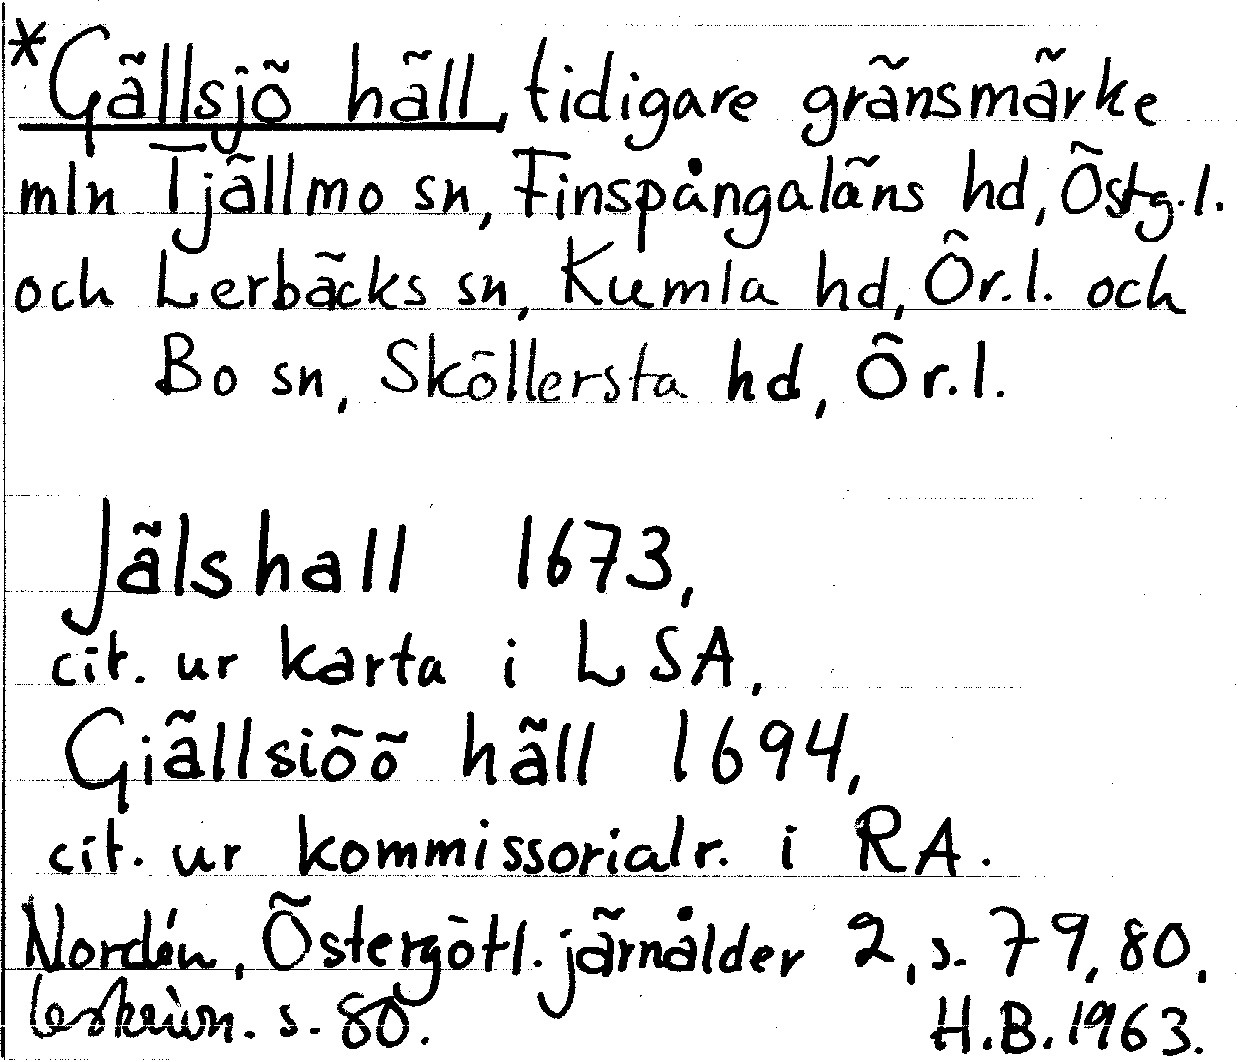 *Gällsjö häll, tidigare gränsmärke
mln Tjällmo sn, Finspångaläns hd, Östg.l.
och Lerbäcks sn, Kumla hd, Ör.l. och
Bo sn, Sköllersta hd, Ör.l.
Jälshall 1673,
cit. ur karta i LSA,
Giällsiöö häll 1694,
cit. ur kommissorialr. i RA.
Nordén, Östergötl. järnålder 2, s. 79, 80,
beskrivn. s. 80.
H.B. 1963.